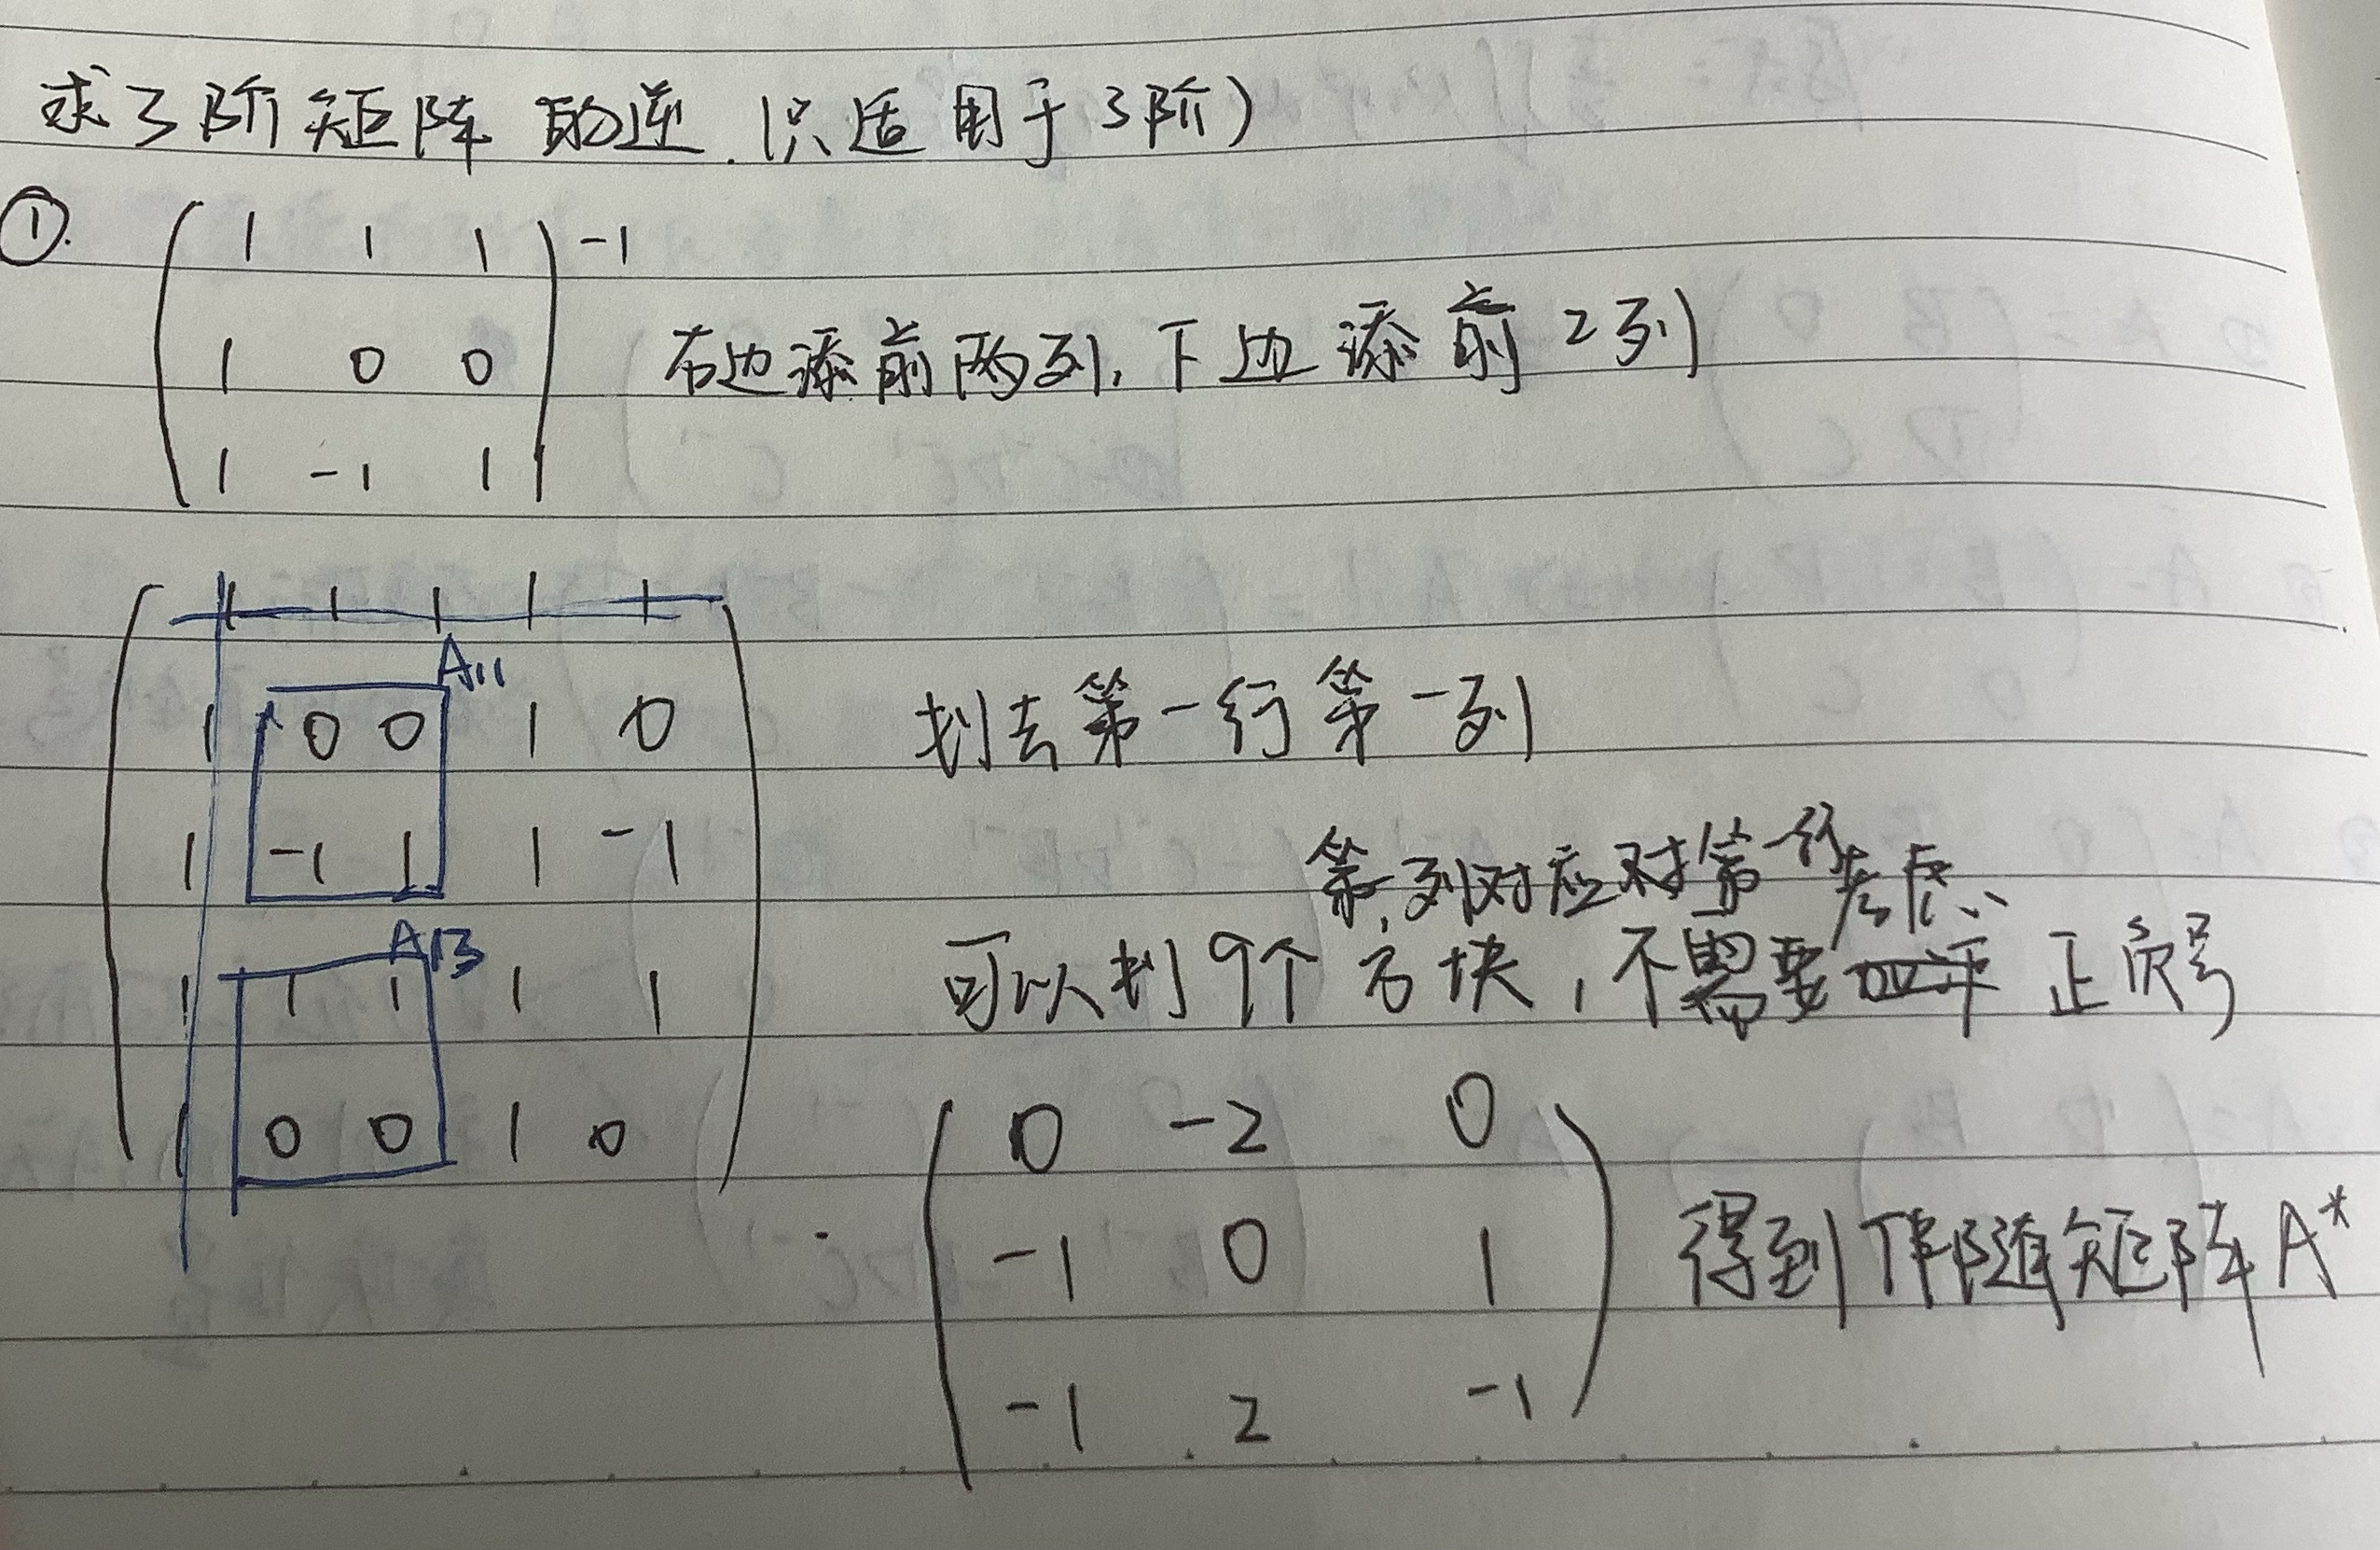 求3阶矩阵的逆.(只适用于3阶)
①.
1 1 1 -1
1 0 0 右边添前两列,下边添前2列
1 -1 1
1 1 1 1 1
A11
1 0 0 1 0 划去第一行第一列
1 -1 1 1 -1
第一列对应对第一行
考虑
A13
1 1 1 1 1 可以划9个方块,不需要 正负号
1 0 0 1 0
0 -2 0
-1 0 1 得到伴随矩阵A*
-1 2 -1